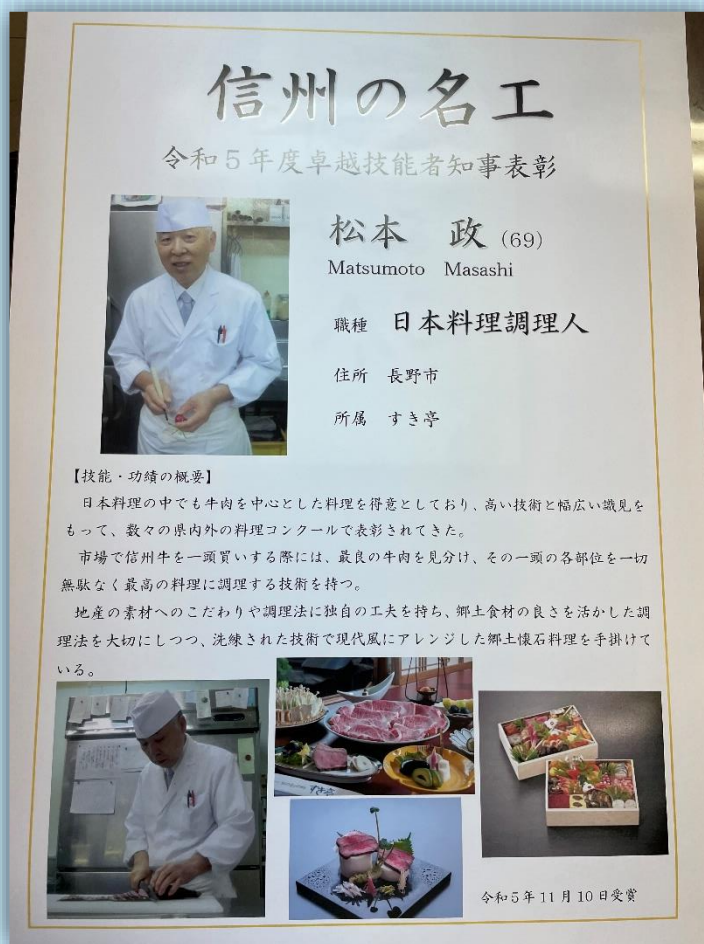 信州の名工
令和5年度卓越技能者知事表彰
松本　政 (69)
Matsumoto Masashi
職種　日本料理調理人
住所　長野市
所属　すき亭
【技能・功績の概要】
日本料理の中でも牛肉を中心とした料理を得意としており、高い技術と幅広い識見を
もって、数々の県内外の料理コンクールで表彰されてきた。
市場で信州牛を一頭買いする際には、最良の牛肉を見分け、その一頭の各部位を一切
無駄なく最高の料理に調理する技術を持つ。
地産の素材へのこだわりや調理法に独自の工夫を持ち、郷土食材の良さを活かした調
理法を大切にしつつ、洗練された技術で現代風にアレンジした郷土懐石料理を手掛けて
いる。
すき亭
令和5年11月10日受賞